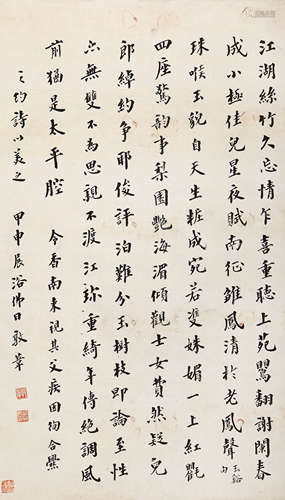 江湖絲竹久忘情乍喜重聽上苑鶯翻謝闌春
成小極佳兒星夜賦南征雛鳳清於老鳳聲玉谿句
珠喉玉貌自天生粧成宛若雙妹媚一上紅氍
四座驚韵事梨園艷海湄傾觀士女費然疑兒
郎綽約爭耶俊評泊難分玉樹枝即論至性
六無雙不為思親不渡江珎重綺年傳絕調風
前猶是太平腔　令香南來視其父疾回海合爨
之約詩以美之　甲申辰浴佛日敬